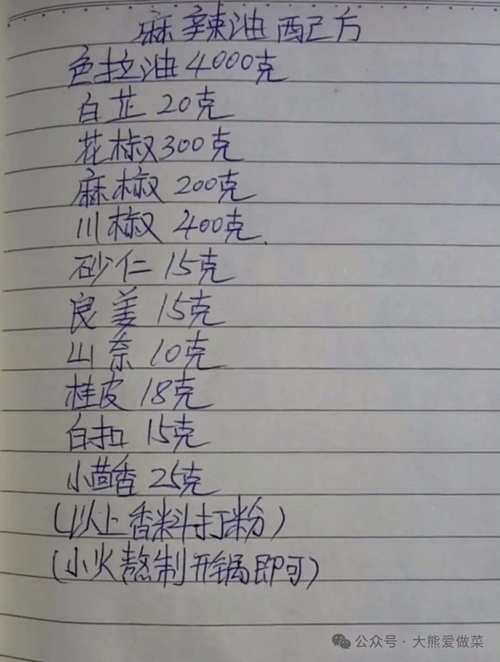 麻辣油配方
色拉油4000克
白芷20克
花椒300克
麻椒200克
川椒400克
砂仁15克
良姜15克
山奈10克
桂皮18克
白扣15克
小茴香25克
(以上香料打粉)
(小火熬制开锅即可)
公众号·大熊爱做菜